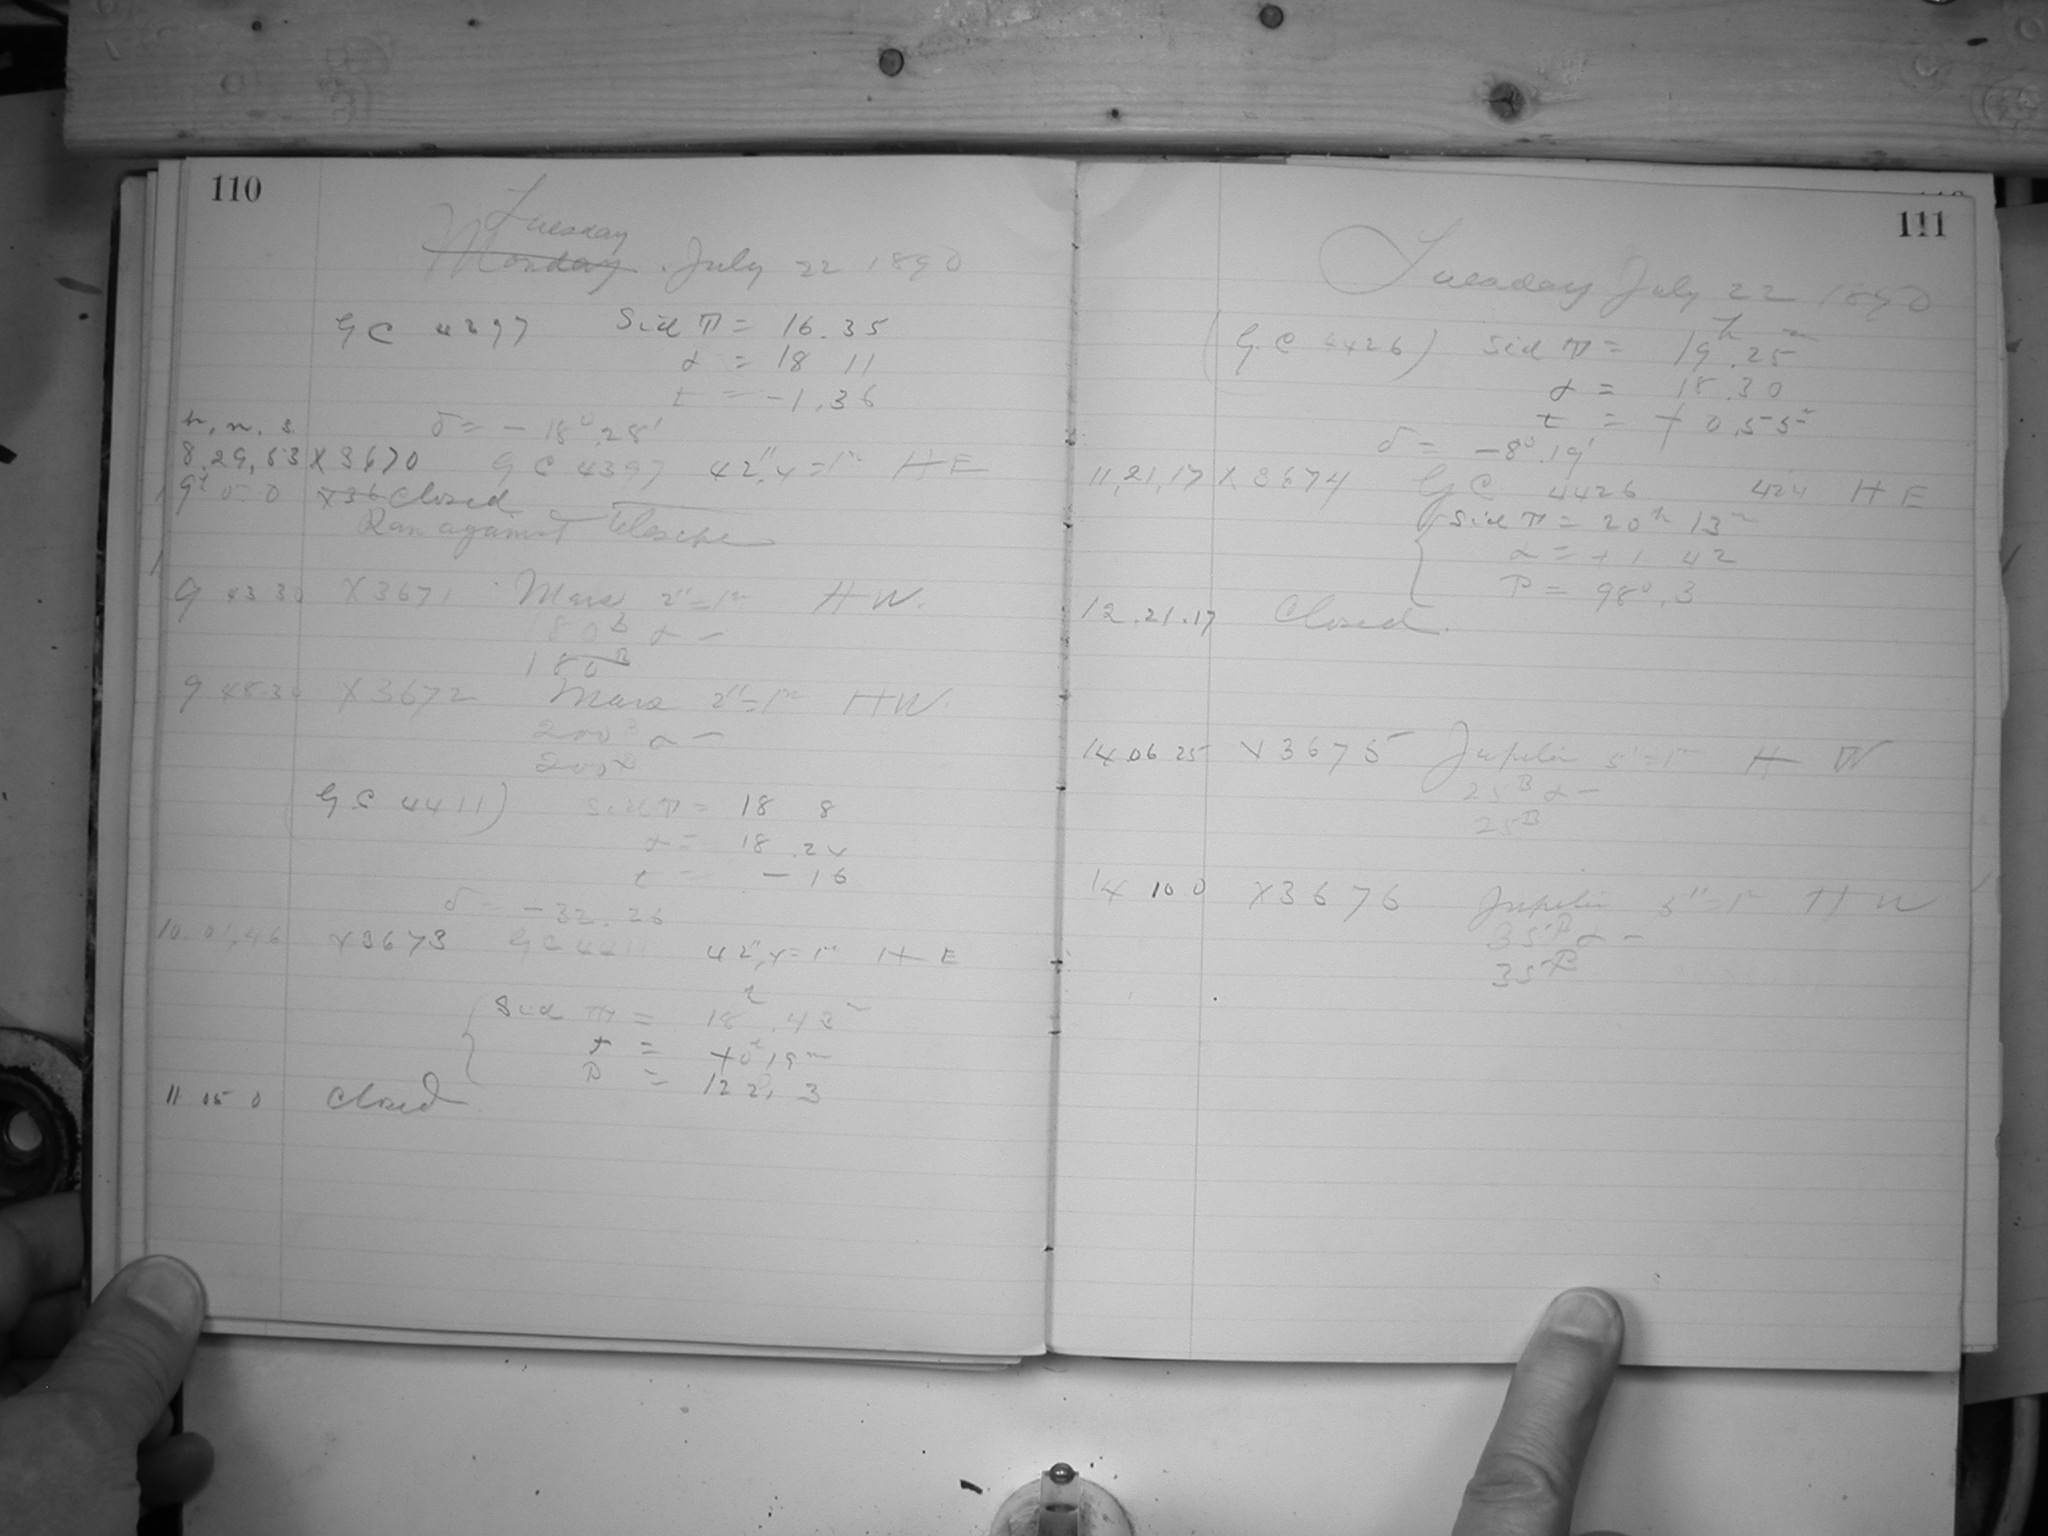 110
Tuesday
Monday. July 22 1890
G C 4397 Sid T = 16.35
α = 18 11
t = -1.36
h. m. s. δ = - 18° 28'
8.29,53 X 3670 G C 4397 42",4 = 1m H E
9 5 0 X36 Closed
Ran against telescope
9 43 30 X 3671 Mars 2"=1m H W.
180 B α -
180 B
9 48.30 X 3672 Mars 2"=1m H W.
200 B α -
200 B
(G.C 4411) Sid T = 18 8
α = 18.24
t = - 16
δ = -32.26
10.01,46 X3673 G C 4411 42",4=1m H E
Sid T = 18h.43m
t = +0h 19m
P = 122,3
11 05 0 Closed
111
Tuesday July 22 1890
(G.C 4426) Sid T = 19h.25m
α = 18.30
t = + 0.55m
δ = -8°.19'
11,21,17 X 3674 G C 4426 42,4 H E
Sid T = 20h 13m
α = +1 42
P = 98°.3
12.21.17 Closed.
14 06 25 X 3675 Jupiter 5"=1m H W
25 B α -
25 B
14 10 0 X3676 Jupiter 5"=1m H W
35 B α -
35 B